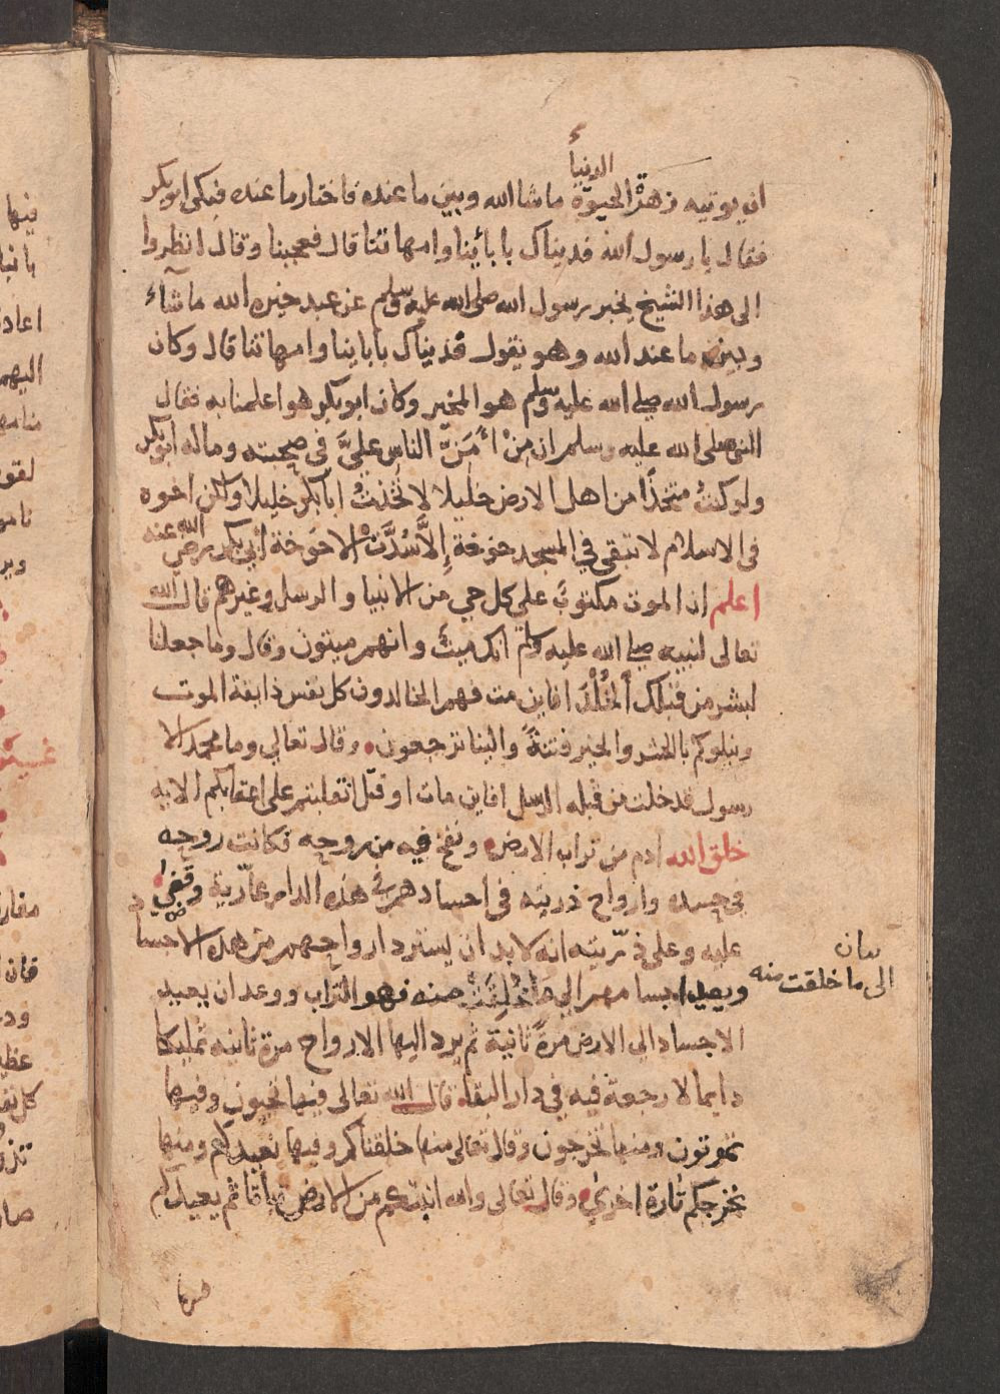 الدنيا
ان يوتيه زهرة الحيوة ما شا الله وبين ما عنده فاختار ما عنده فبكى ابو بكر
فقال يا رسول الله فديناك باباينا وامهاتنا قال فعجبنا وقال انظروا
الى هذا الشيخ يخبر رسول الله صلى الله عليه وسلم عن عبد خيره الله ما شاء
وبين ما عند الله وهو يقول فديناك باباينا وامهاتنا قال وكان
رسول الله صلى الله عليه وسلم هو المخير وكان ابو بكر هو اعلمنا به فقال
النبى صلى الله عليه وسلم ان مِنْ أَمَنّ الناس عليَّ فى صحبته وماله ابو بكر
ولو كنتُ متخذًا من اهل الارض خليلا لاتخذتُ ابا بكر خليلا ولكن اخوه
فى الاسلام لا تبقى في المسجد خوخة إِلاَّ سُدَّت الا خوخة أبي بكر رضى الله عنه
اعلم ان الموت مكتوب على كل حي من الانبيا والرسل وغيرهم قال الله
تعالى لنبيه صلى الله عليه وسلم انك ميت وانهم ميتون وقال وما جعلنا
لبشر من قبلك الخُلْدَ افاين مت فهم الخالدون كل نفس ذايقة الموت
ونبلوكم بالشر والخير فتنةً والينا ترجعون وقال تعالي وما محمد الا
رسول قد خلت من قبله الرسل افاين مات او قتل انقلبتم على اعقابكم الايه
خلق الله ادم من تراب الارض ونفخ فيه من روحه فكانت روحه
في جسده وارواح ذريته فى اجسادهم في هذه الدار عارية وقضى
عليه وعلى ذرّيته انه لا بد ان يسترد ارواحهم من هذه الاجساد
ويعيد اجسامهم الي ما خُلِقَتْ منه فهو التراب ووعد ان يعيد
بيان
الى ما خلقت منه
الاجساد الى الارض مرةً ثانية ثم يرد اليها الارواح مرة ثانيه تمليكا
دايما لا رجعة فيه في دار البقا قال الله تعالى فيها تحيون وفيها
تموتون ومنها تخرجون وقال تعالى منها خلقناكم وفيها نعيدكم ومنها
نخرجكم تارة اخرى وقال تعالى والله انبتكم من الارض نباتا ثم يعيدكم
فيها